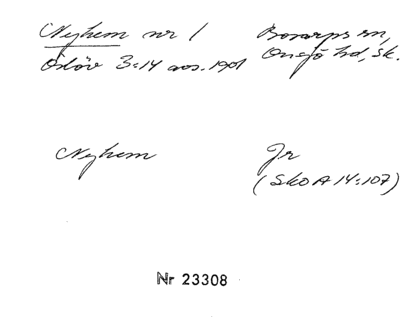 Nyhem nr 1 Bosarps sn,
Östöv 3:14 avs. 1901 Onsjö hd, Sk.
Nyhem Jr
(Sko A 14:107)
Nr 23308